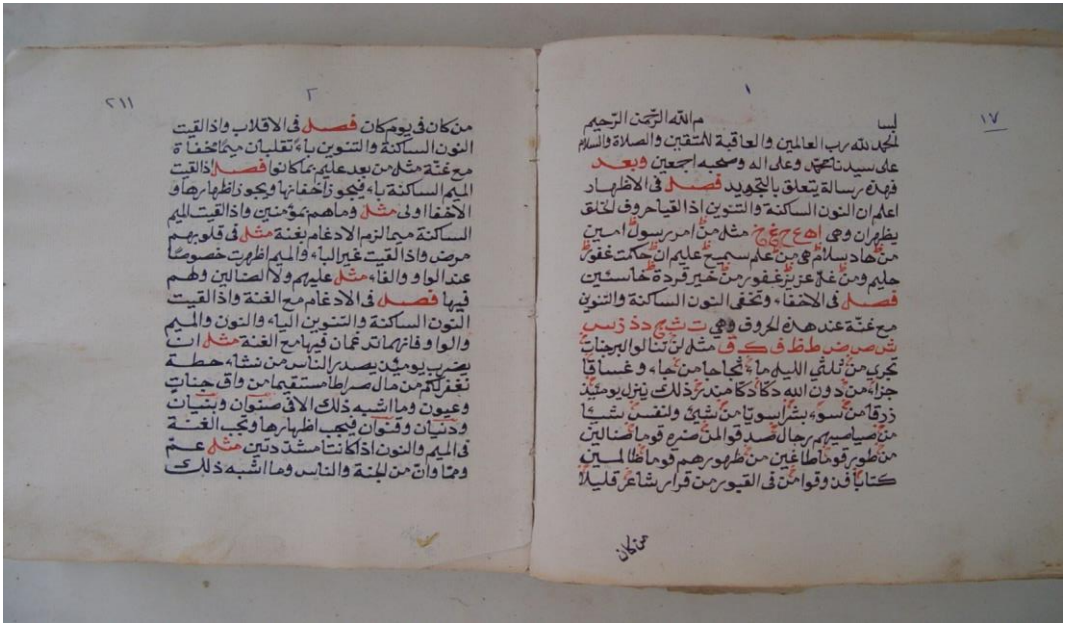 ١
١٧
بسم الله الرحمن الرحيم
الحمد لله رب العالمين والعاقبة للمتقين والصلاة والسلام
على سيدنا محمد وعلى اله وصحبه اجمعين وبعد
فهذه رسالة يتعلق بالتجويد فصل في الاظهار
اعلم ان النون الساكنة والتنوين اذا لقيا حروف الحلق
يظهران وهي ا ه ع ح غ خ مثل من امر رسول امين
من هاد سلام هي من علم سميع عليم ان حكمت غفور
حليم ومن غل عزيز غفور من خير قردة خاسئين
فصل في الاخفاء وتخفى النون الساكنة والتنوين
مع غنة عند هذه الحروف وهي ت ث ج د ذ ز س
ش ص ض ط ظ ف ك ق مثل لن تنالوا البر جنات
تجري من ثلثي الليل ماء ثجاجا من جاء وغساقا
جزاء من دون الله دكا دكا منذر ذلك ينزل يومئذ
زرقا من سوء بشرا سويا من شيئ ولنفس شيئا
من صياصيهم رجال صدقوا لمن ضره قوما ضالين
من طور قوما طاغين من ظهورهم قوما ظالمين
كتابا فذوقوا من في القبور من قرار شاعر قليلا
من كان
٢
٢١١
من كان في يوم كان فصل في الاقلاب واذا لقيت
النون الساكنة والتنوين باء تقلبان ميما مخفاة
مع غنة مثل من بعد عليم بما كانوا فصل اذا لقيت
الميم الساكنة باء فيجوز اخفائها ويجوز اظهارها و
الاخفا اولى مثل وما هم بمؤمنين واذا لقيت الميم
الساكنة ميما لزم الادغام بغنة مثل في قلوبهم
مرض واذا لقيت غير الباء والميم اظهرت خصوصا
عند الواو والفاء مثل عليهم ولا الضالين ولهم
فيها فصل في الادغام مع الغنة واذا لقيت
النون الساكنة والتنوين الياء والنون والميم
والواو فانهما تدغمان فيها مع الغنة مثل ان
يضرب يومئذ يصدر الناس من نشاء حطة
نغفر لكم من مال صراطا مستقيما من واق جنات
وعيون وما اشبه ذلك الا في صنوان وبنيان
ودنيان وقنوان فيجب اظهارها وتجب الغنة
في الميم والنون اذا كانتا مشددتين مثل عم
ومما وان من الجنة والناس وما اشبه ذلك